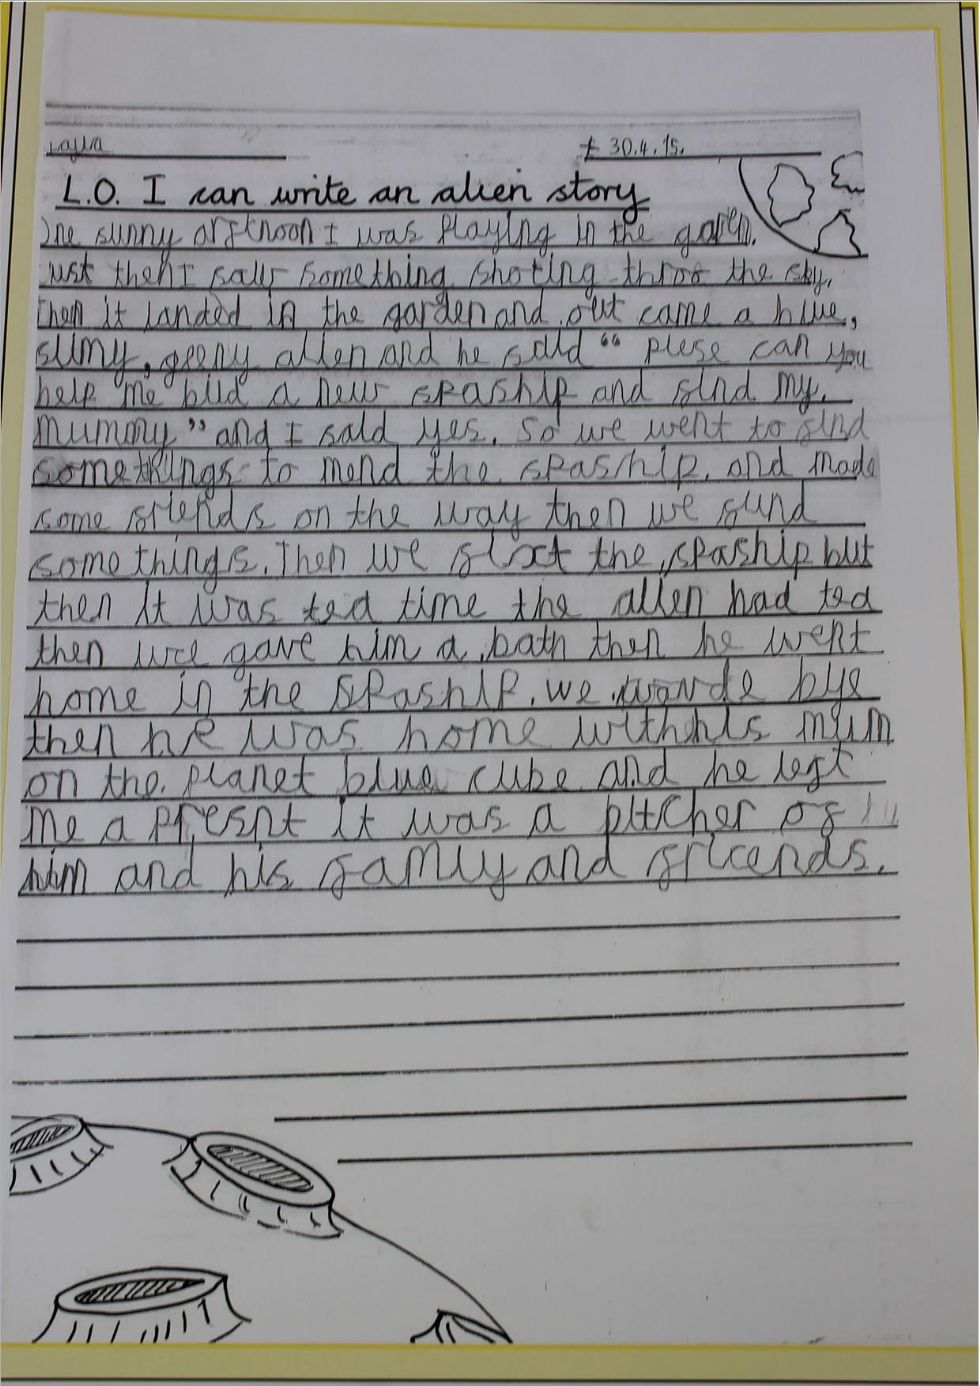 30.4.15.
L.O. I can write an alien story
One sunny arftnoon I was playing in the garen.
Just then I saw something shoting throo the sky.
Then it landed in the garden and out came a blue,
slimy, geeny alien and he said " plese can you
help me bild a new spaship and find my
mummy" and I said yes. So we went to find
somethings to mend the spaship. and made
some friends on the way then we fund
somethings. Then we fixt the spaship but
then it was tea time the alien had tea
then we gave him a bath then he went
home in the spaship. we wavde bye
then he was home with his mum
on the planet blue cube and he left
me a presnt it was a pitcher of
him and his famly and friends.